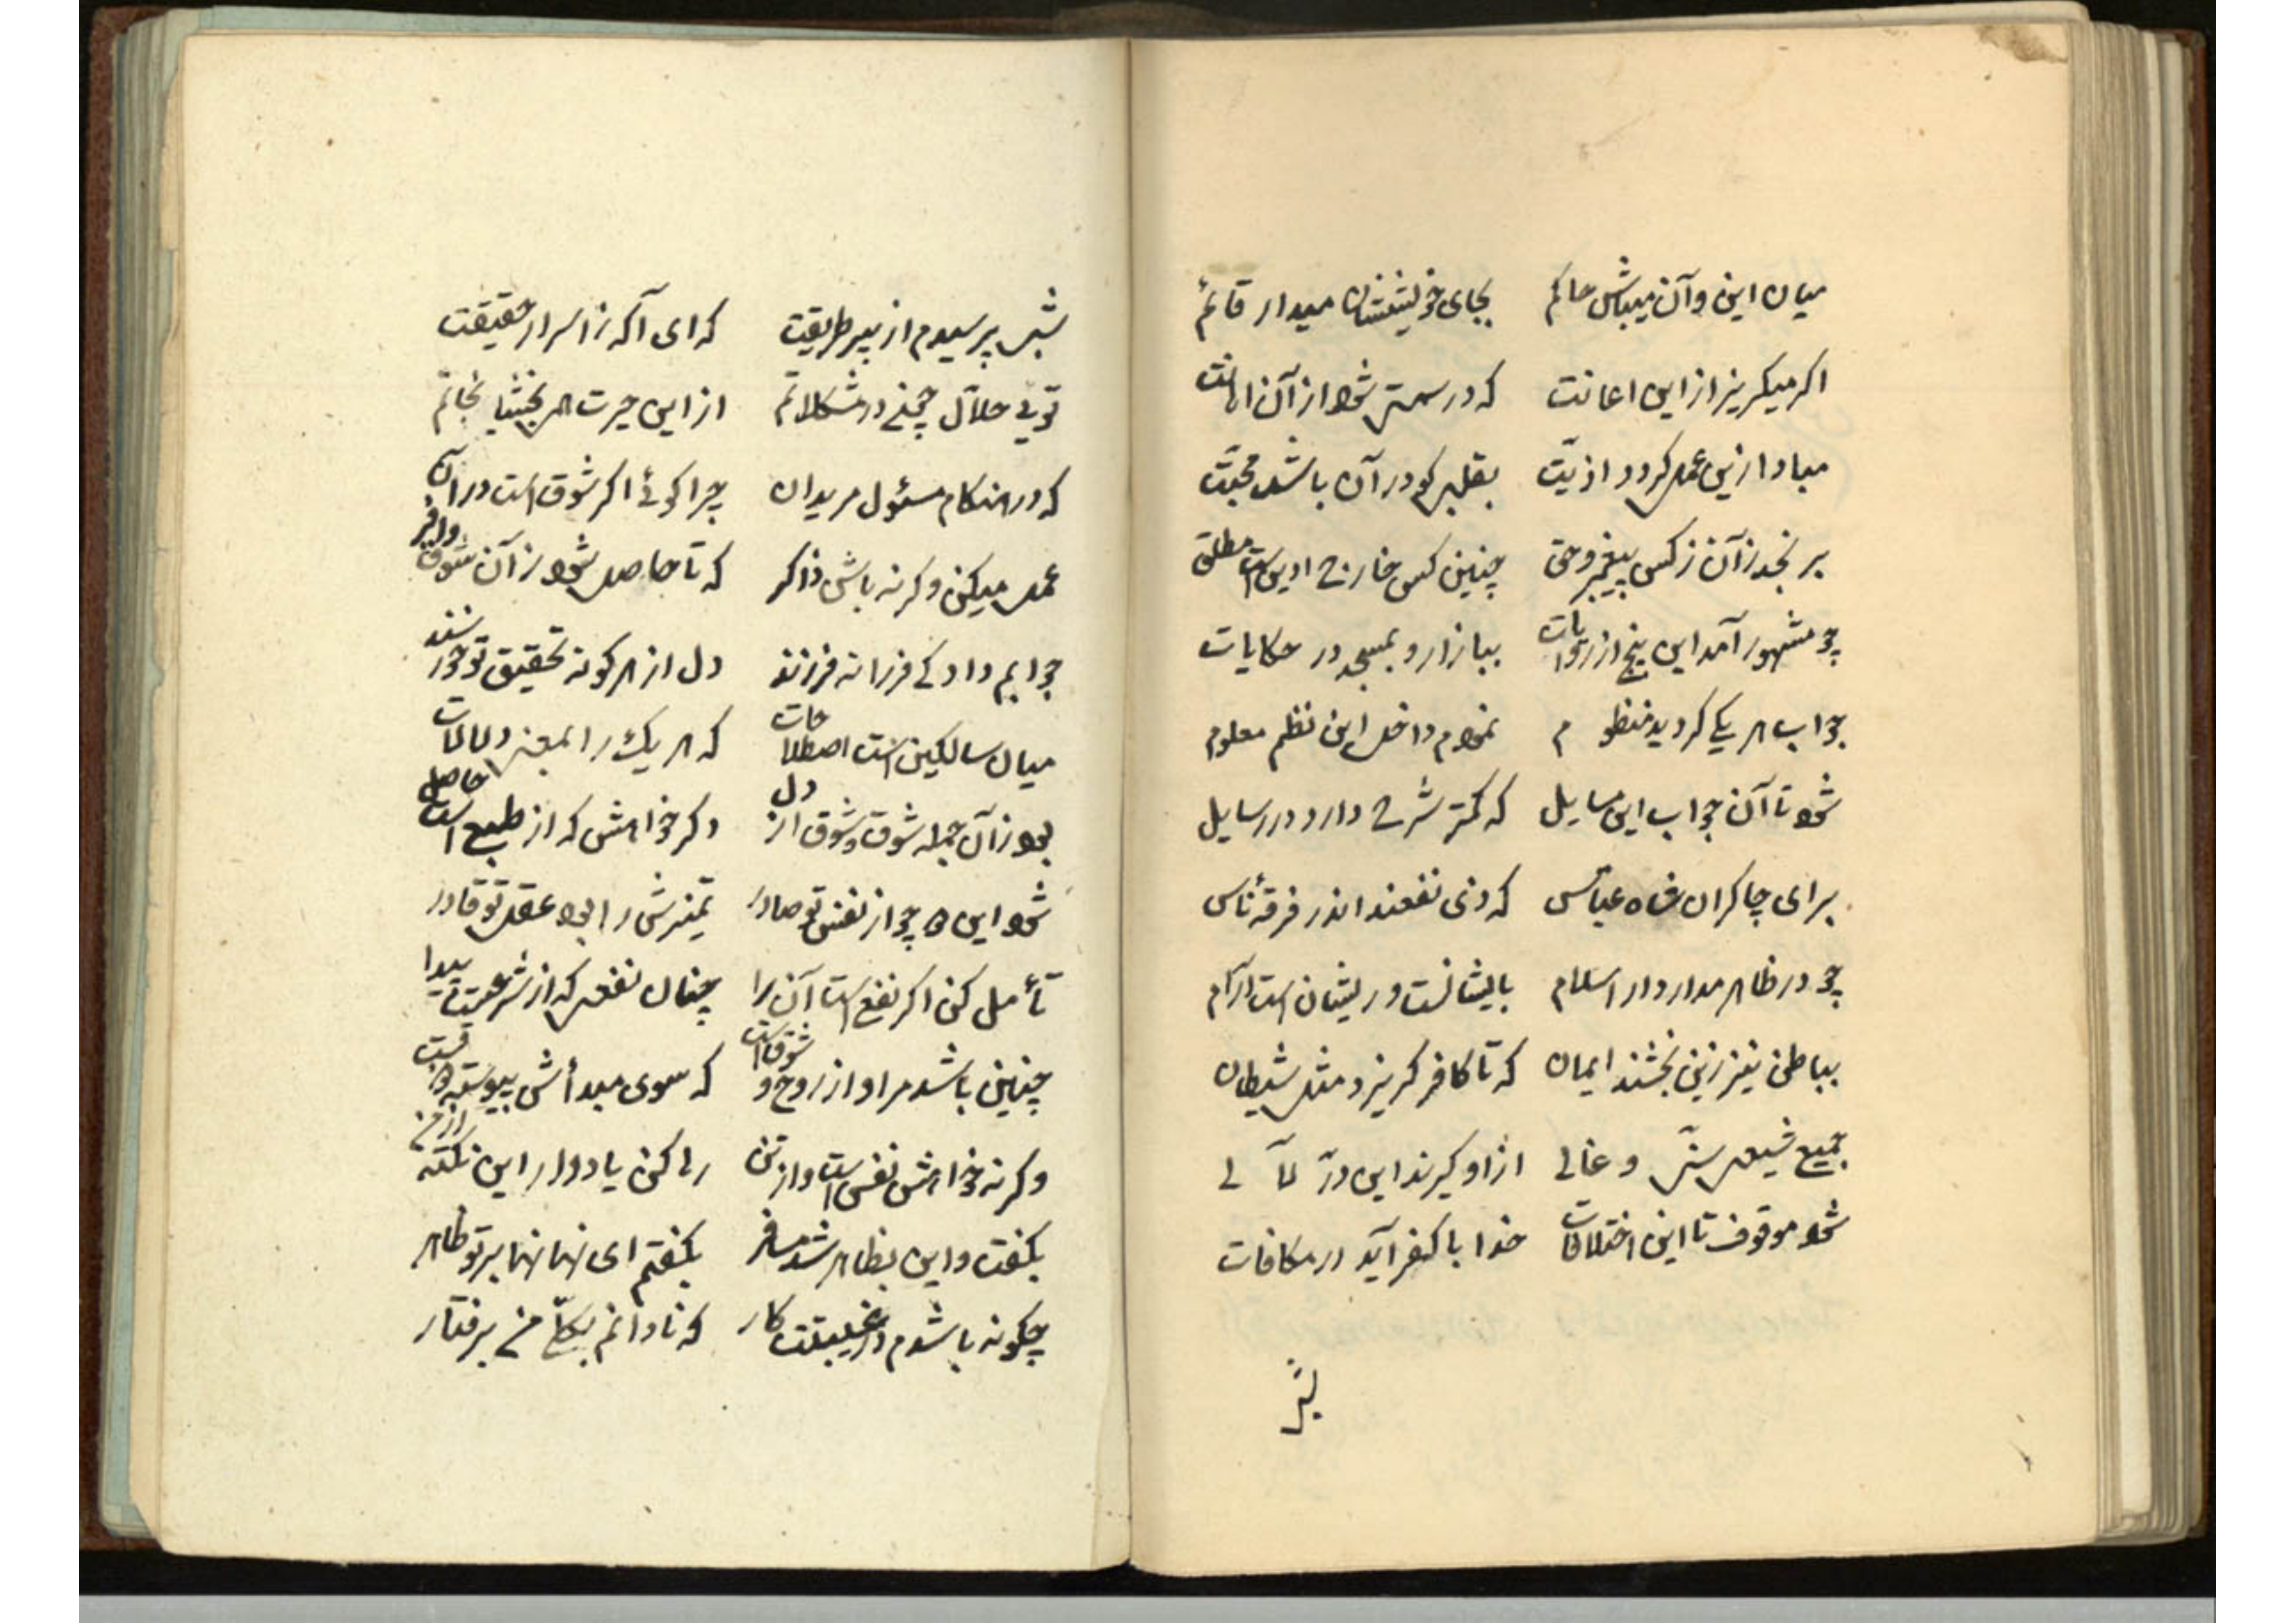 میان این و آن میباش حاکم بجای خویشتنشان میدار قائم
اکر میکریز از این اعانت که در سمتی شود از آن اهانت
مبادا زین عمل کردد اذیّت بقلبی کو در آن باشد محبّت
برنجد زآن زکس پیغمبر و حق چنین کس خارج ادین است مطلق
چو مشهور آمد این پنج از روایات ببازار و بمسجد در حکایات
جواب هر یکی کردید منظوم نمودم داخل این نظم معلوم
شود تا آن جواب این مسایل که کمتر شرح دارد در رسایل
برای چاکران شاه عبّاس که ذی نفعند اندر فرقهٔ ناس
چو در ظاهر مدار دار اسلام بایشانست وریشان است آرام
بباطن نیز زین بخشند ایمان که تا کافر کریزد مثل شیطان
جمیع شیعی سنّی و غالی از او کیرند این درّ لآلی
شود موقوف تا این اختلافات خدا با کفر آید در مکافات
شبی
شبی پرسیدم از پیر طریقت که ای آکه ز اسرار حقیقت
تویی حلاّل جمع در مشکلاتم از این حیرت هی بخشا نجاتم
که در هنکام مسئول مریدان چرا کوئی اکر شوق است در آن
عمل میکن وکرنه باش ذاکر که تا حاصل شود ز آن شوق وافر
جوابم داد کی فرزانه فرزند دل از هر کونه تحقیق تو خورسند
میان سالکین است اصطلاحات که هر یک را بمعنی دلالات
بود زآن جمله شوق و شوق از دل دکر خواهش که از طبع است حاصل
شود این ها چو از نفس تو صادر تمیزش را بود عقل تو قادر
تأمل کن اکر نفع است آن را چنان نفعی که از شرعست پیدا
چنین باشد مر او از روح و شوق است که سوی مبدأش پیوسته
وکرنه خواهش نفس است و از تن رها کن یاد دار این نکته از من
بکفت و این بظاهر شد مسافر بکفتم ای نهانها بر تو ظاهر
چکونه باشدم در غیبتت کار که نادانم بکلّ من برفتار